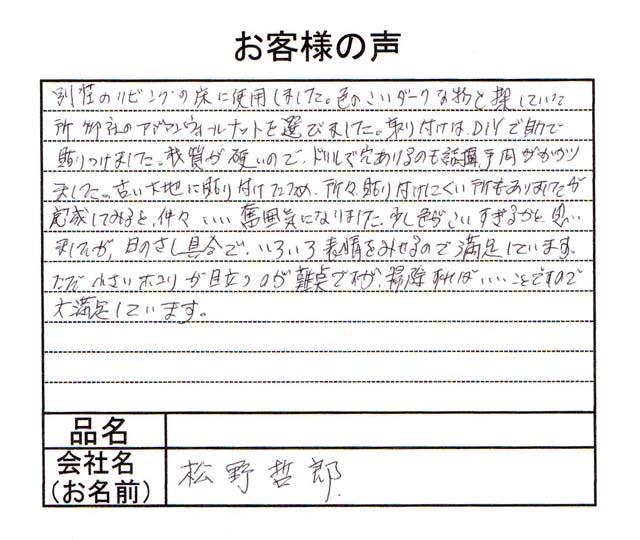 お客様の声
別荘のリビングの床に使用しました。色のこいダークな物を探していた
所 御社のアジアンウォールナットを選びました。取り付けは、DIYで自力で
貼りつけました。材質が硬いので、ドリルで穴あけるのも結構手間がかかり
ました。古い木地に貼り付けたため、所々貼り付けにくい所もありましたが
完成してみると、仲々いい雰囲気になりました。少し色がこいすぎるかと思い
ましたが、日のさし具合で、いろいろ表情をみせるので満足しています。
ただ 小さいホコリが目立つのが難点ですが、掃除すればいいことですので
大満足しています。
品名
会社名
(お名前)
松野哲郎